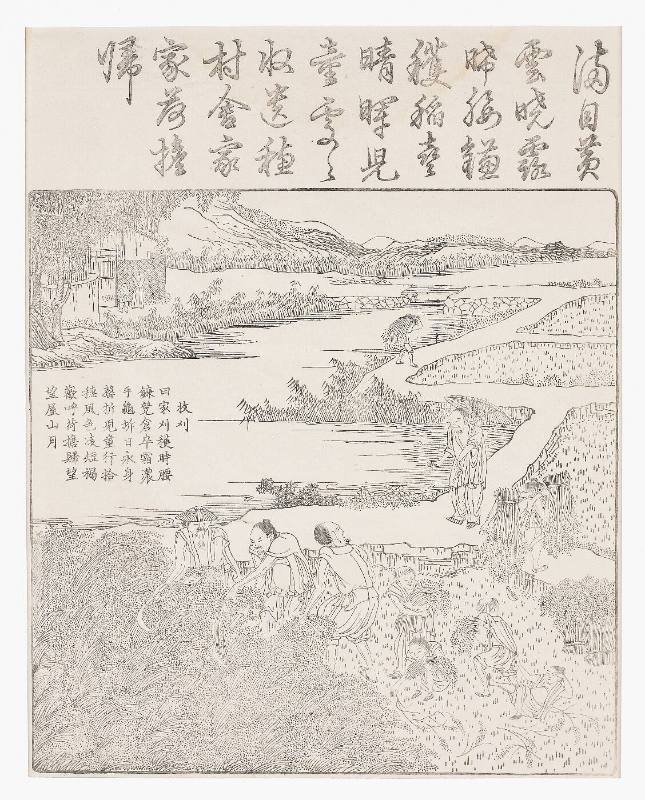 滿目黃
雲曉露
晞腰鎌
穫稻喜
晴暉兒
童處々
收遺穗
村舍家
家荷擔
歸
收刈
田家刈穫時腰
鎌競倉卒霜濃
手龜坼日永身
罄折兒童行拾
穗風色凌短褐
歡呼荷擔歸望
望屋山月